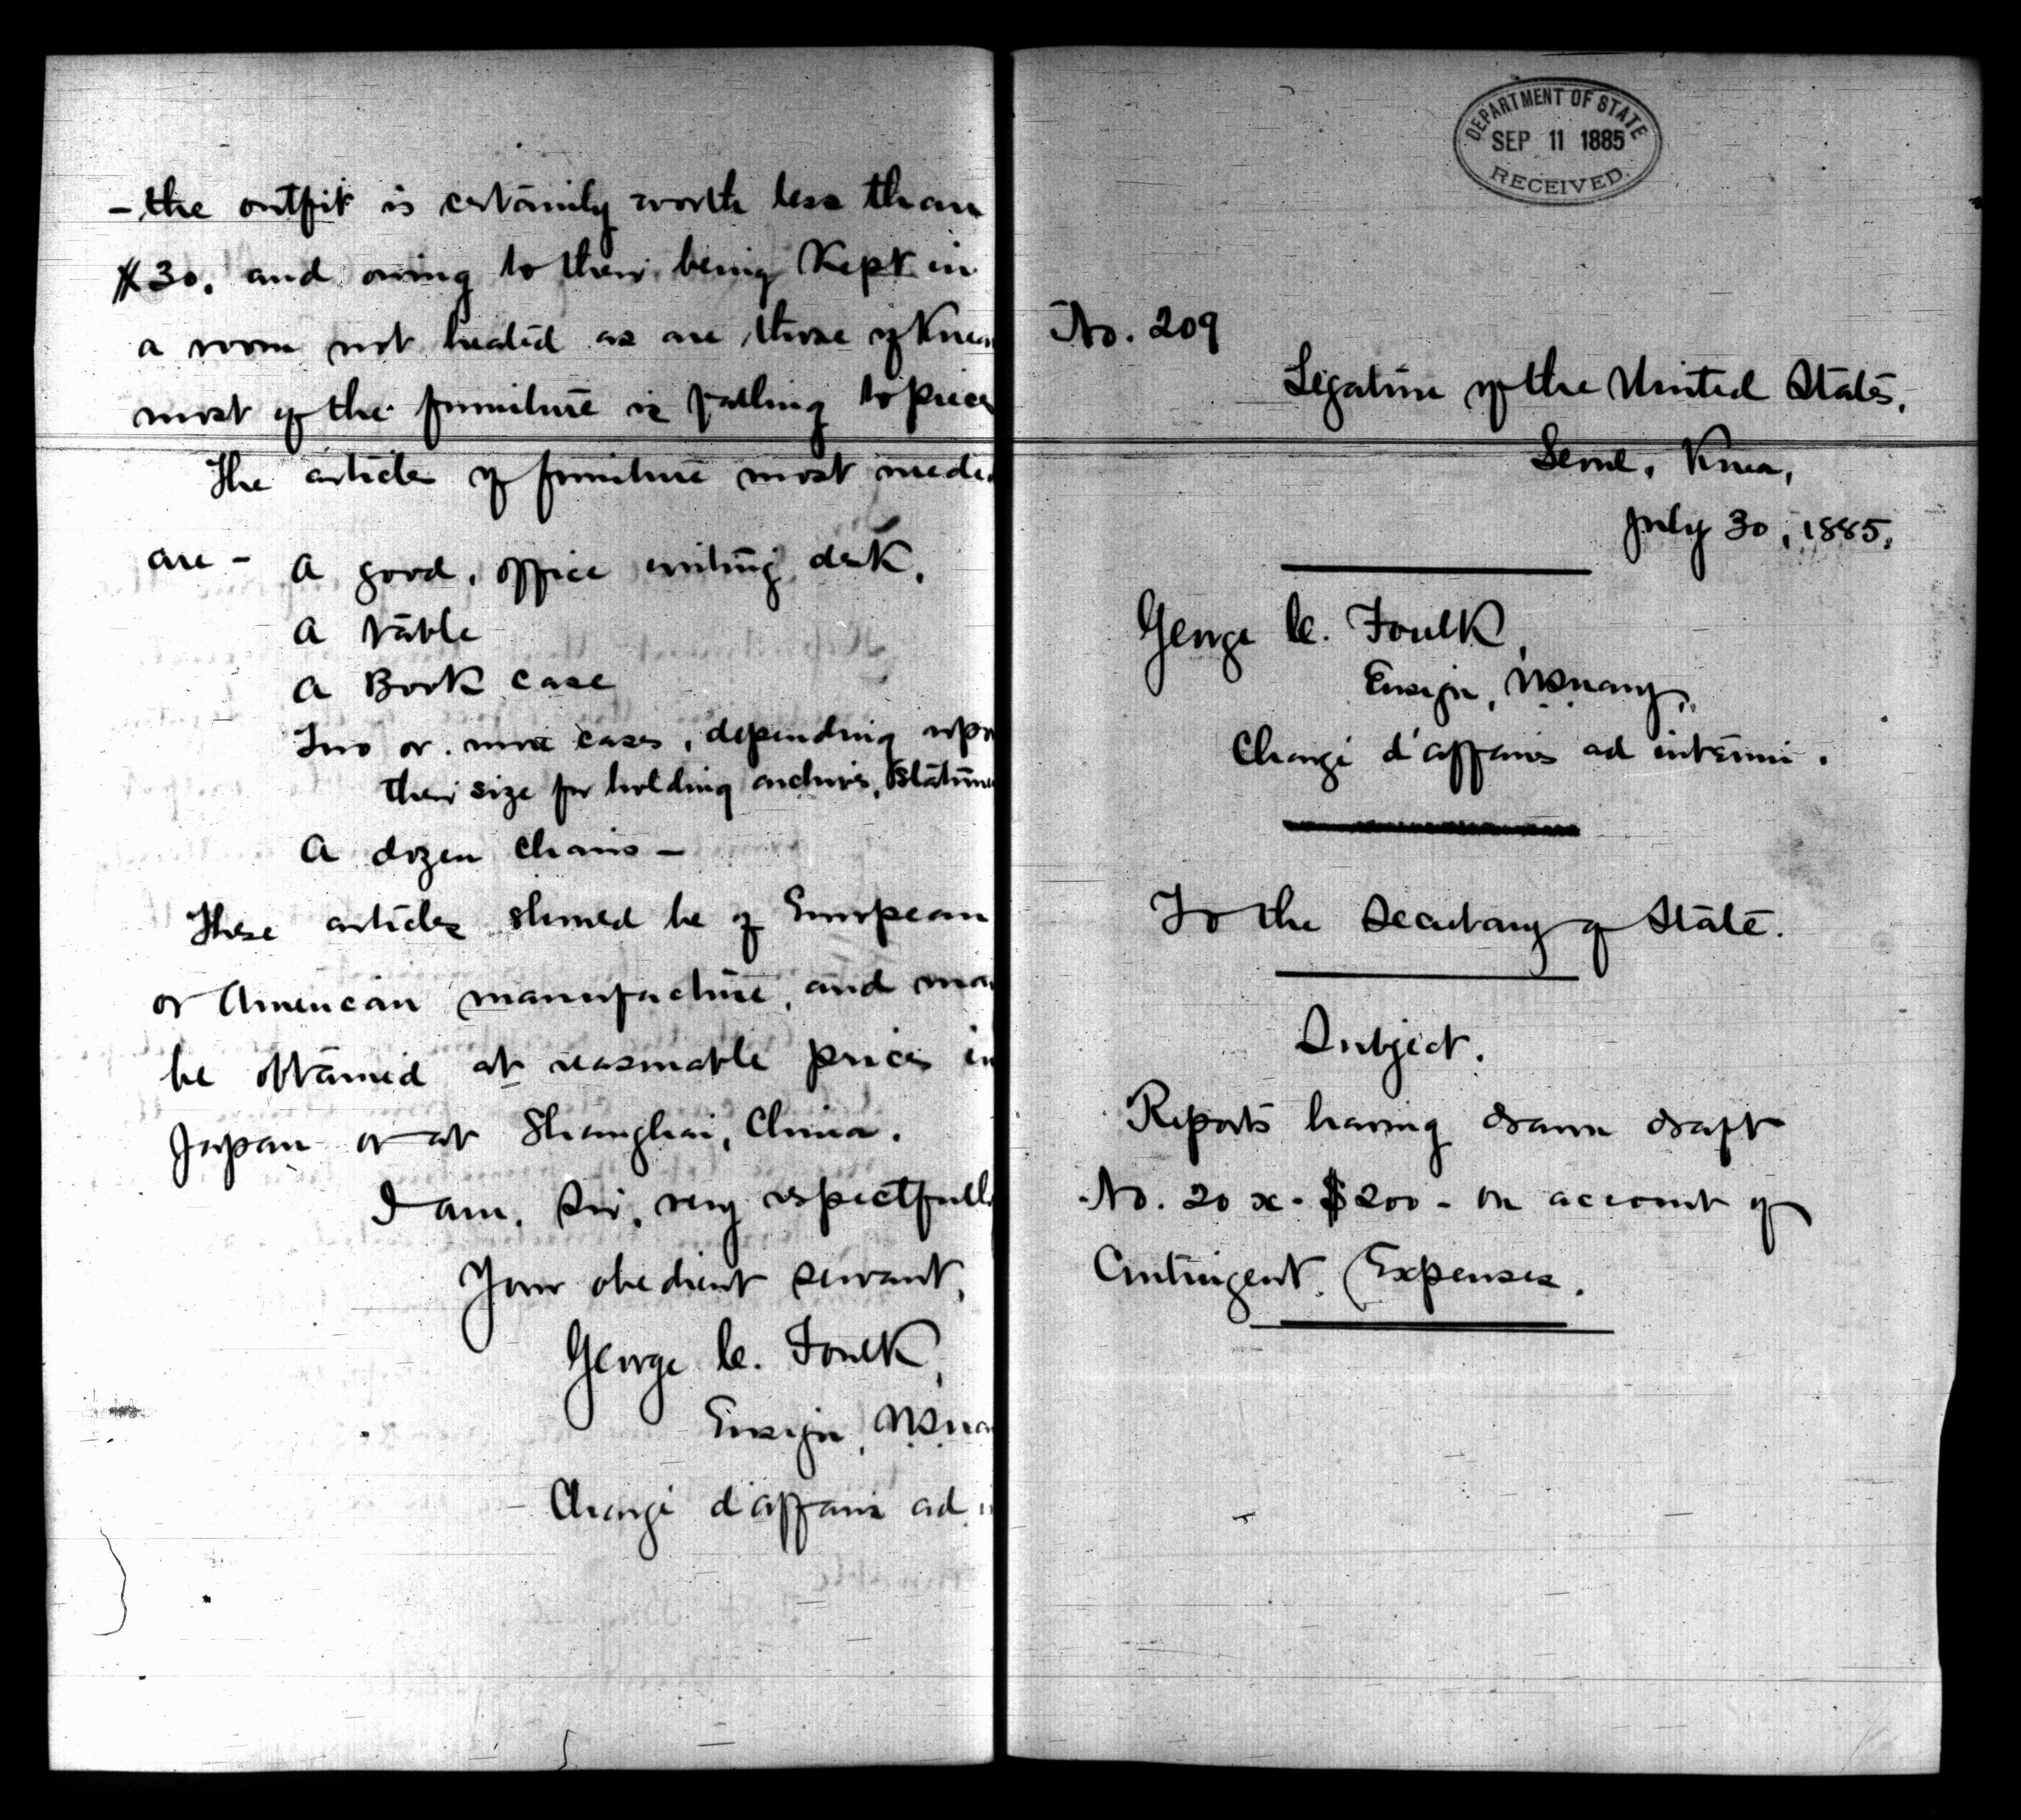 - the outfit is certainly worth less than
$30. and owing to their being kept in
a room not heated as are those of Korea
most of the furniture is falling to piec
The articles of furniture most neede
are - A good, office writing desk.
A table
A Book case
Two or more cases, depending upo
their size for holding archives, Statione
A dozen chairs -
These articles should be of European
or American manufacture, and ma
be obtained at reasonable prices in
Japan or at Shanghai, China.
I am, Sir, very respectfull
Your obedient servant,
George C. Foulk,
Ensign, U.S. Na
Chargé d'affaires ad i
DEPARTMENT OF STATE
SEP 11 1885
RECEIVED.
No. 209
Legation of the United States.
Seoul, Korea,
July 30, 1885.
George C. Foulk,
Ensign, U.S. Navy,
Chargé d'affaires ad interim.
To the Secretary of State.
Subject.
Reports having drawn draft
No. 20 x - $200 - on account of
Contingent Expenses.